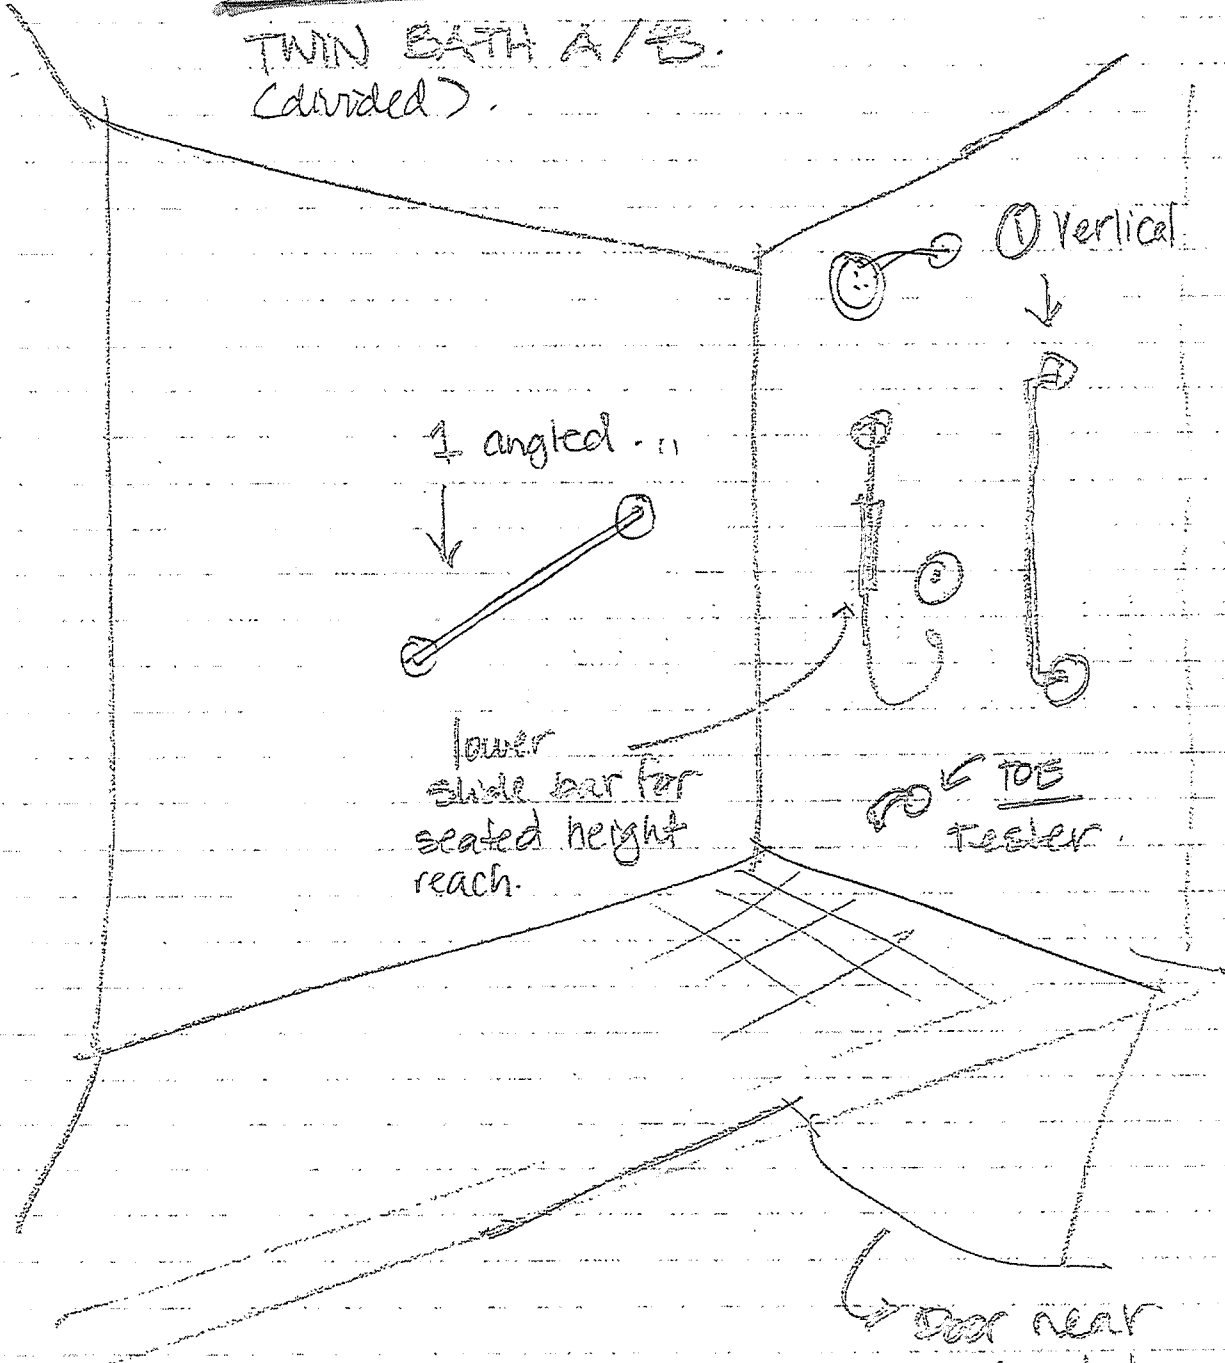 TWIN BATH A/B.
(divided).
① Vertical
1 angled ...
lower
slide bar for
seated height
reach.
TOE
Tester.
Door near